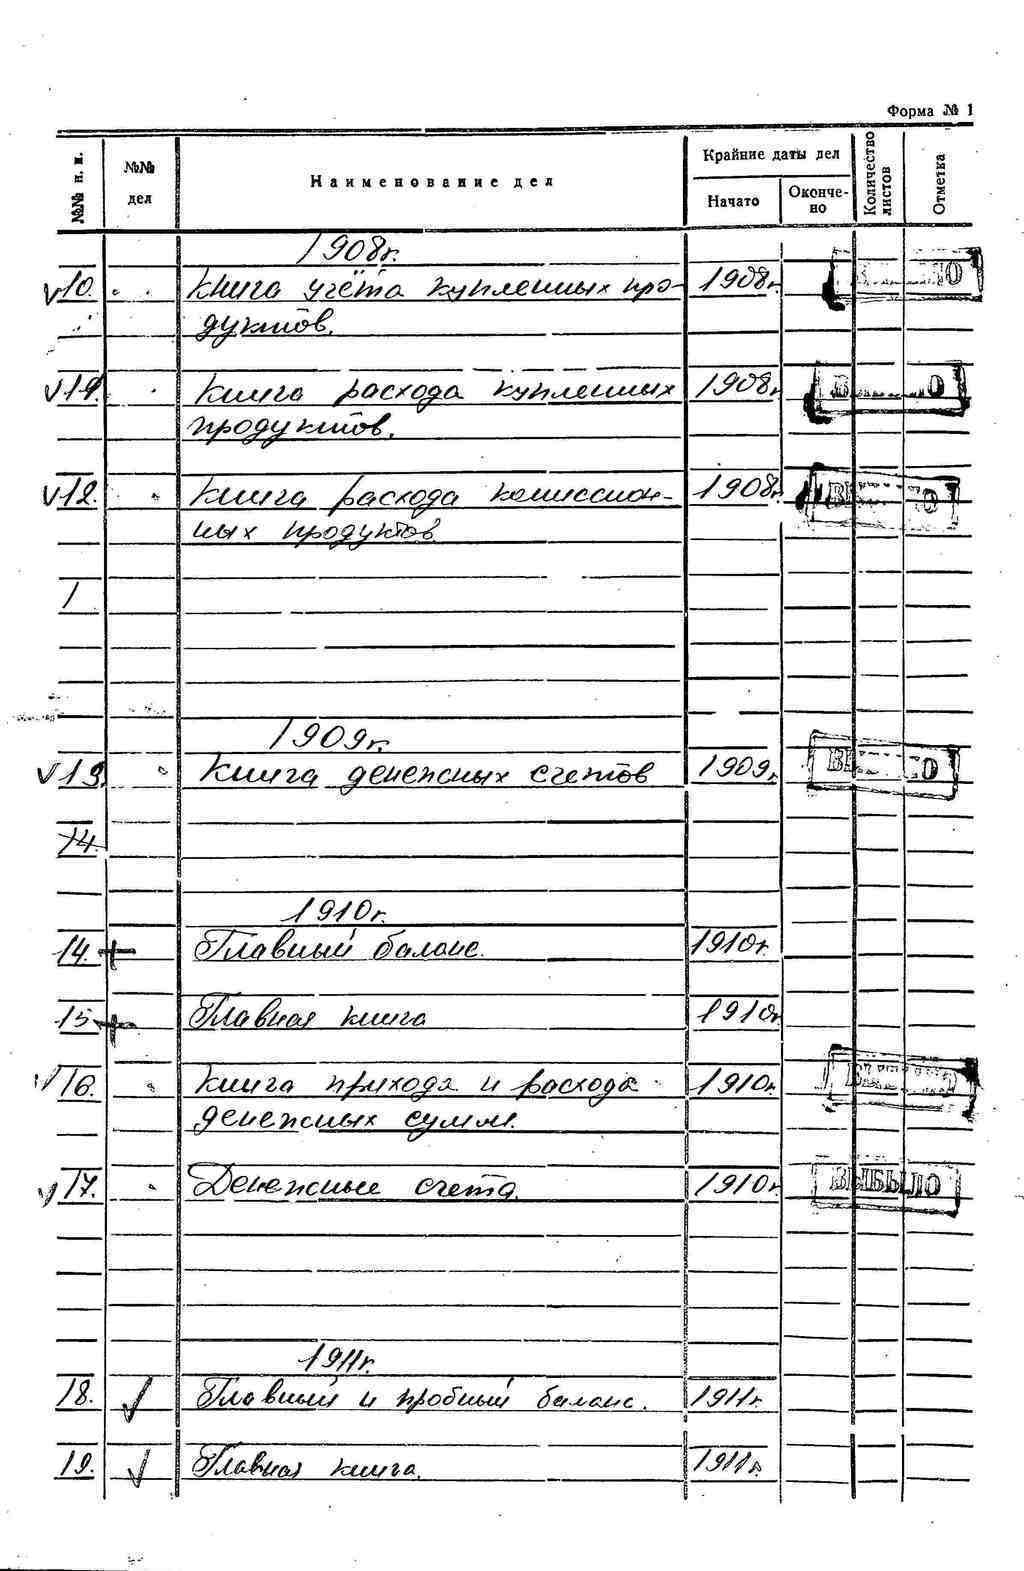 Форма № 1
№№ п. п.
№№ дел
Наименование дел
Крайние даты дел
Начато
Окончено
Количество листов
Отметка
1908г.
v10. Книга учёта купленных про- 1908г.
дуктов.
v11. Книга расхода купленных 1908г.
продуктов.
v12. Книга расхода комиссион- 1908г.
ных продуктов
1909г.
v13. Книга денежных счетов 1909г.
14.
1910г.
14. + Главный баланс. 1910г.
15 + Главная книга 1910г.
v16. Книга прихода и расхода 1910г.
денежных сумм.
v17. Денежные счета. 1910г. ВЫБЫЛО
1911г.
18. √ Главный и пробный баланс. 1911г.
19. √ Главная книга. 1911г.